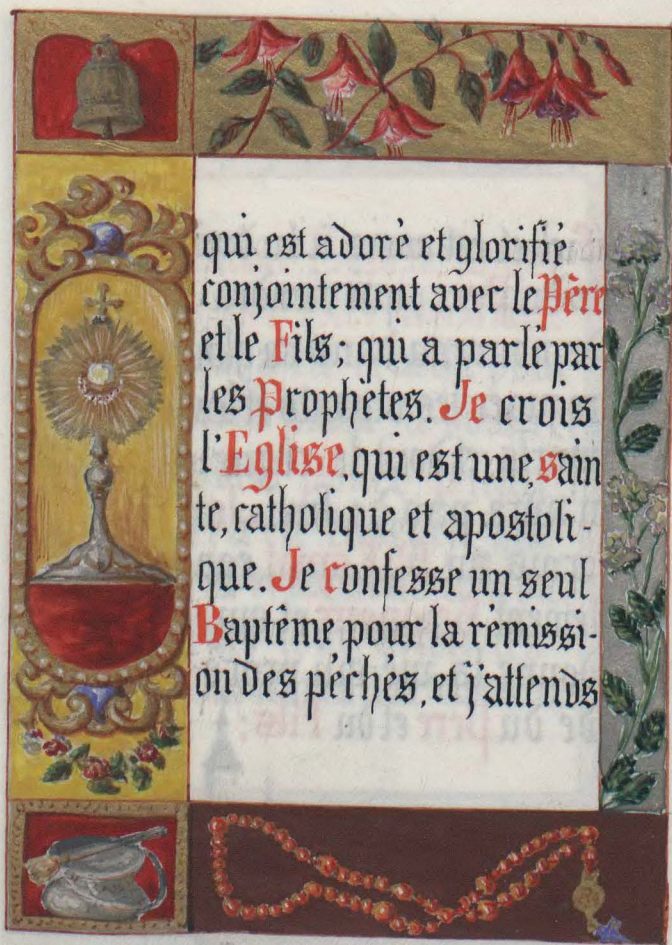 qui est adoré et glorifié
conjointement avec le Père
et le Fils; qui a parlé par
les Prophètes. Je crois
l'Eglise, qui est une, sain
te, catholique et apostoli-
que. Je confesse un seul
Baptême pour la rémissi-
on des péchés, et j'attends